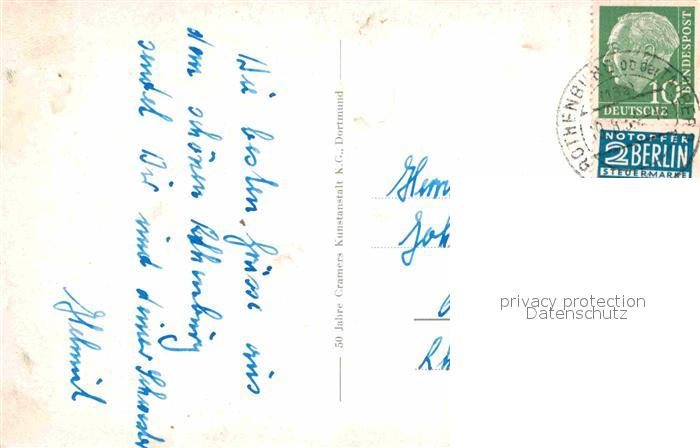 Die besten Grüsse aus
dem schönen Rothenburg
sendet Dir und deiner Schwester
Helmut
50 Jahre Cramers Kunstanstalt K.G., Dortmund
Herrn
Joh
Rh
DEUTSCHE
BUNDESPOST
10
ROTHENBURG ob der TAUBER
NOTOPFER
2 BERLIN
STEUERMARKE
privacy protection
Datenschutz